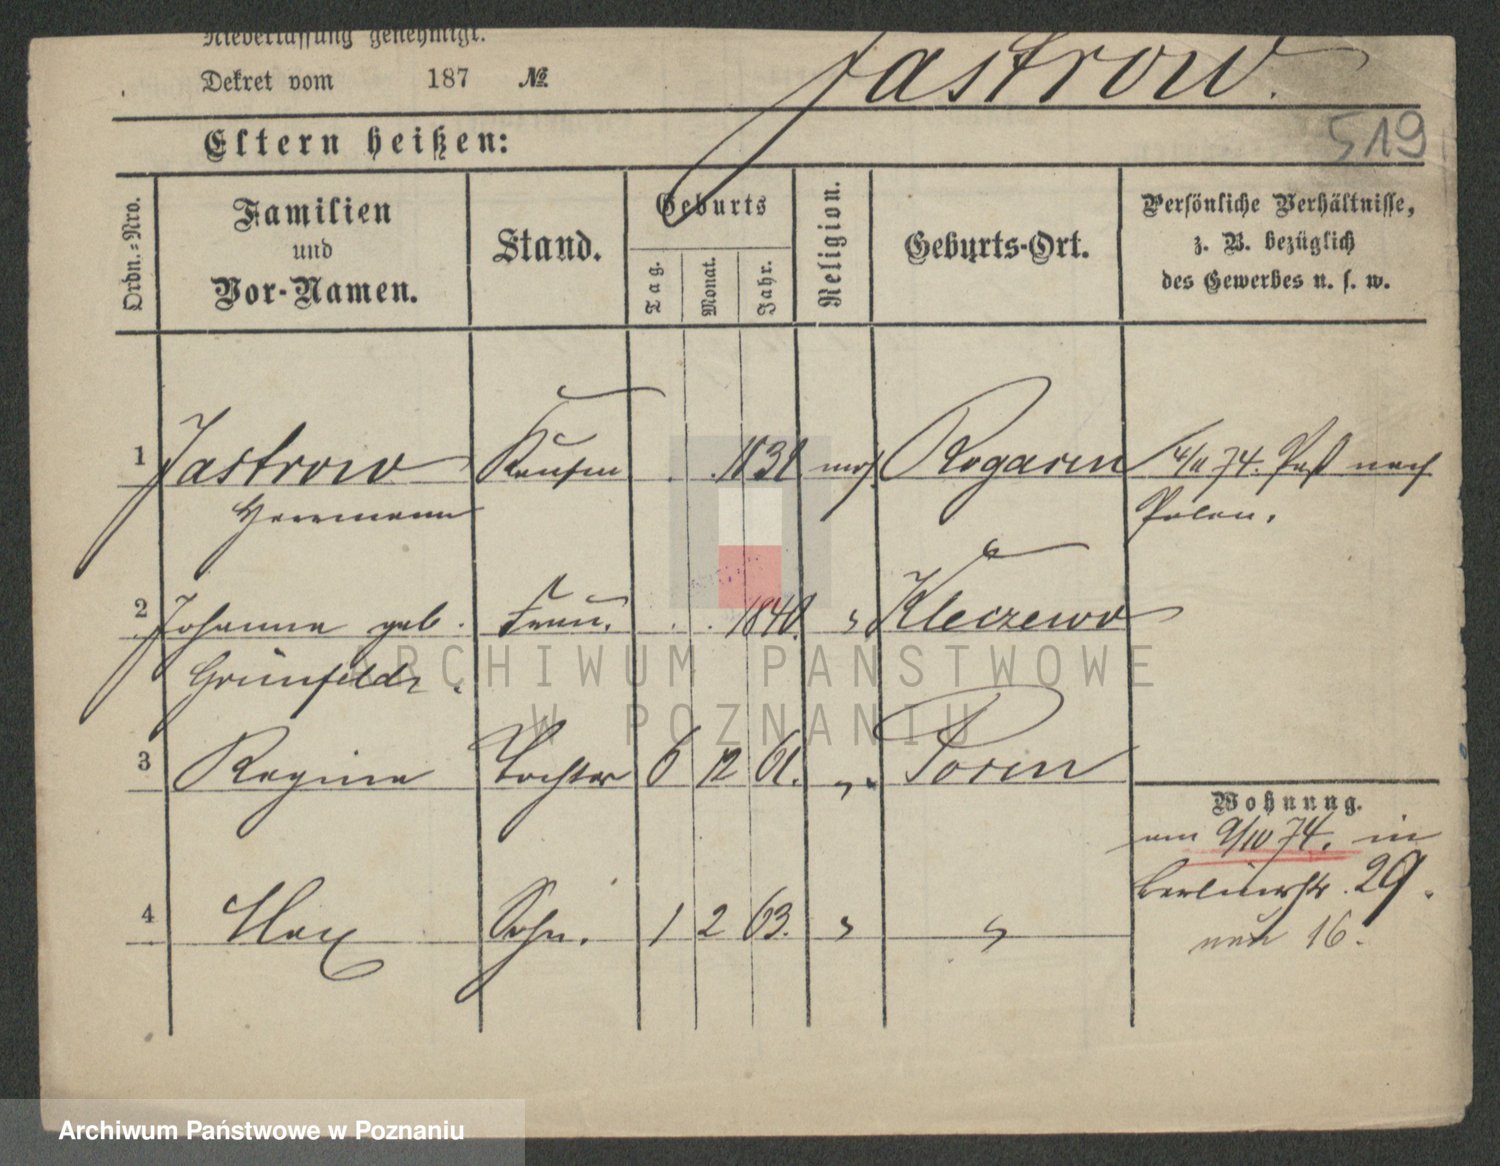 Niederlassung genehmigt.
Dekret vom 187 №
Jastrow.
519
Eltern heißen:
Ordn.=Nro.
Familien
und
Vor-Namen.
Stand.
Geburts
Tag.
Monat.
Jahr.
Religion.
Geburts-Ort.
Persönliche Verhältnisse,
z. B. bezüglich
des Gewerbes u. s. w.
1 Jastrow Kaufm 1831 mos. Rogasen 4/11 74. Paß nach
Herrmann Polen.
2 Johanna geb. Frau. 1840. " Kleczewo
Grünfeld.
3 Regine Tochter 6 12 61. " Posen
Wohnung.
am 9/10 74. in
Berlinerstr. 29.
nun 16.
4 Max Sohn. 1 2 63. " "
ARCHIWUM PAŃSTWOWE
W POZNANIU
Archiwum Państwowe w Poznaniu